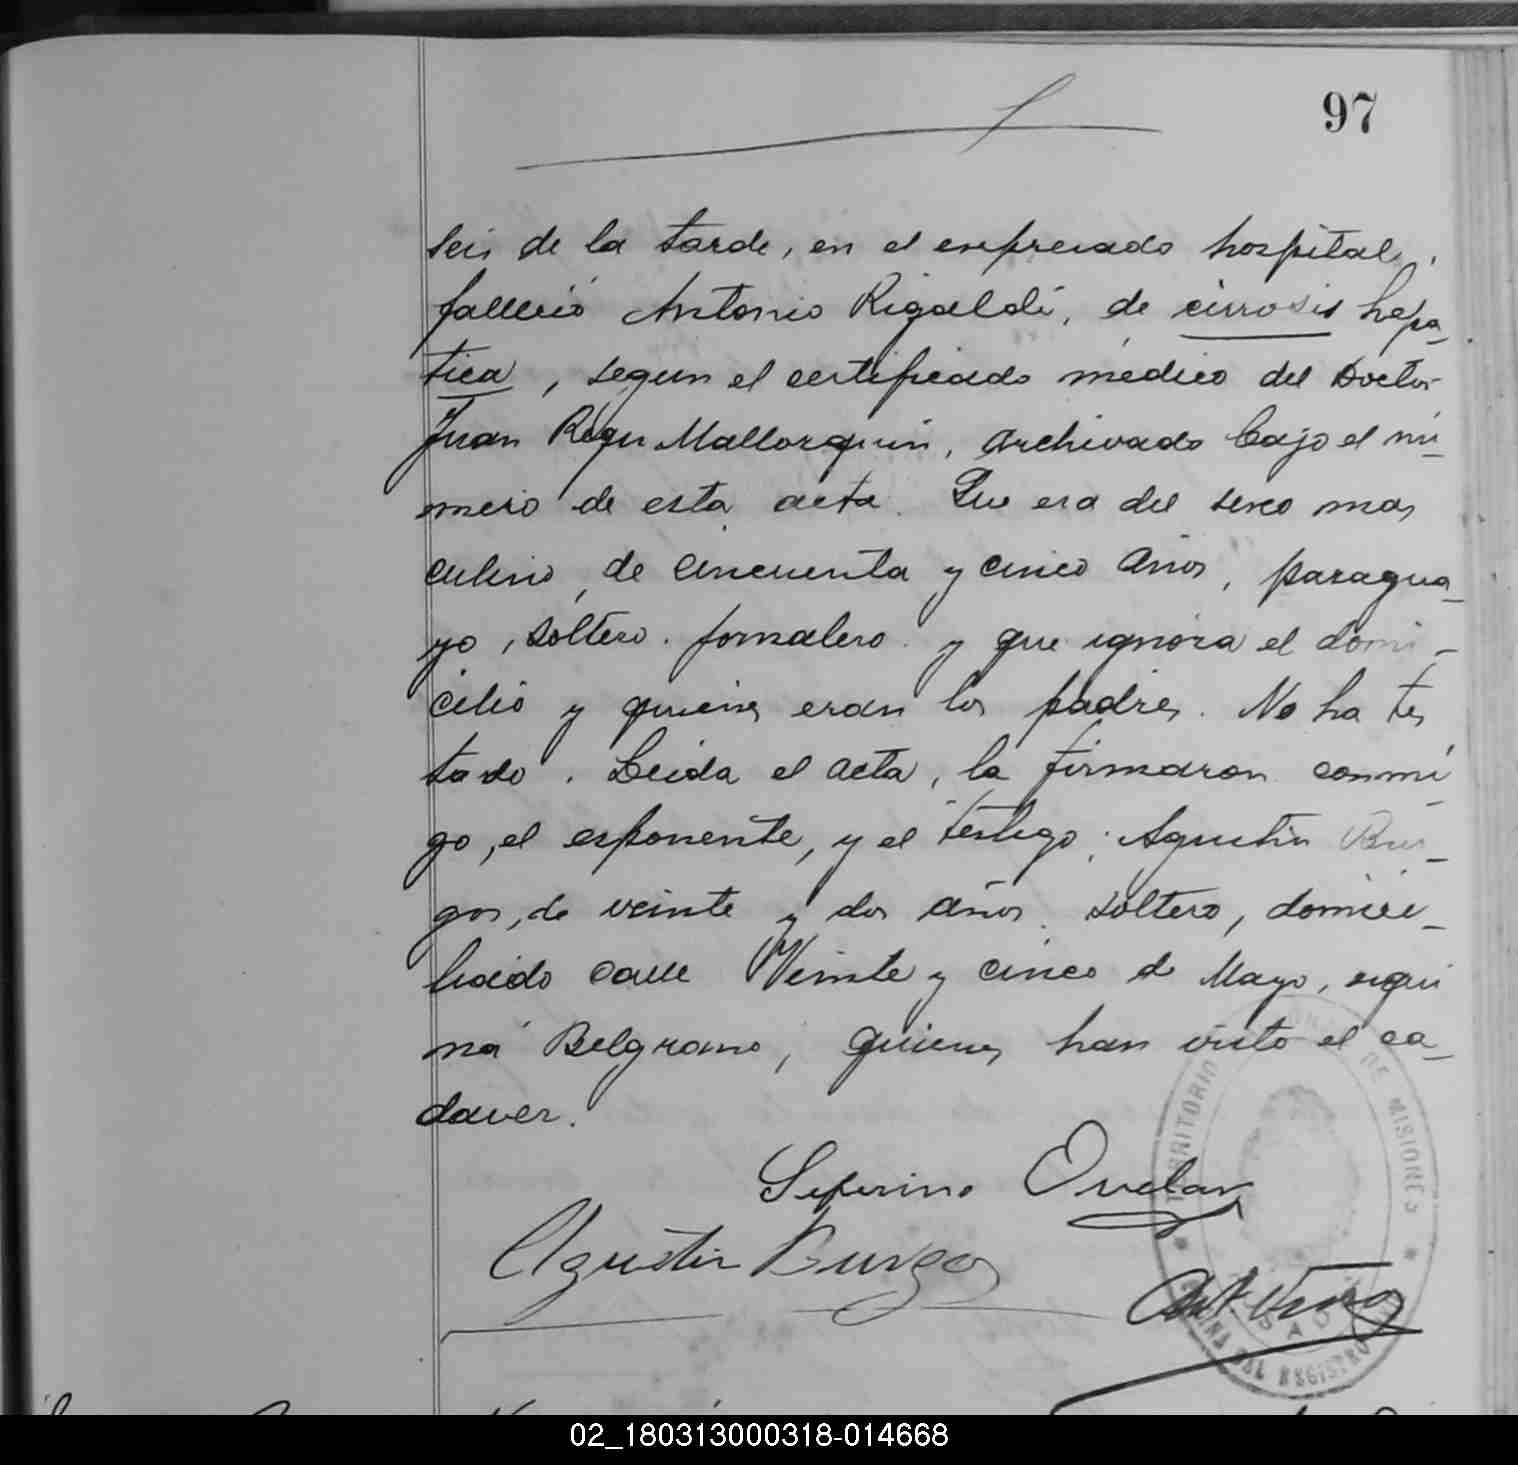 97
seis de la tarde, en el expresado hospital,
falleció Antonio Rigaldi, de cirrosis hepa-
tica, segun el certificado médico del Doctor
Juan Mallorquin, archivado bajo el nú-
mero de esta acta. Que era del sexo mas
culino, de cincuenta y cinco años, paragua-
yo, soltero. jornalero. y que ignora el domi-
cilio y quienes eran los padres. No ha tes
tado. Leida el acta, la firmaron conmi-
go, el exponente, y el testigo: Agustin Bur-
gos, de veinte y dos años. soltero, domici-
liado calle Veinte y cinco de Mayo, esqui
na Belgrano, quienes han visto el ca-
daver.
Seferino Ovelar
Agustin Burgos
TERRITORIO DE MISIONES
DEL REGISTRO
02_180313000318-014668